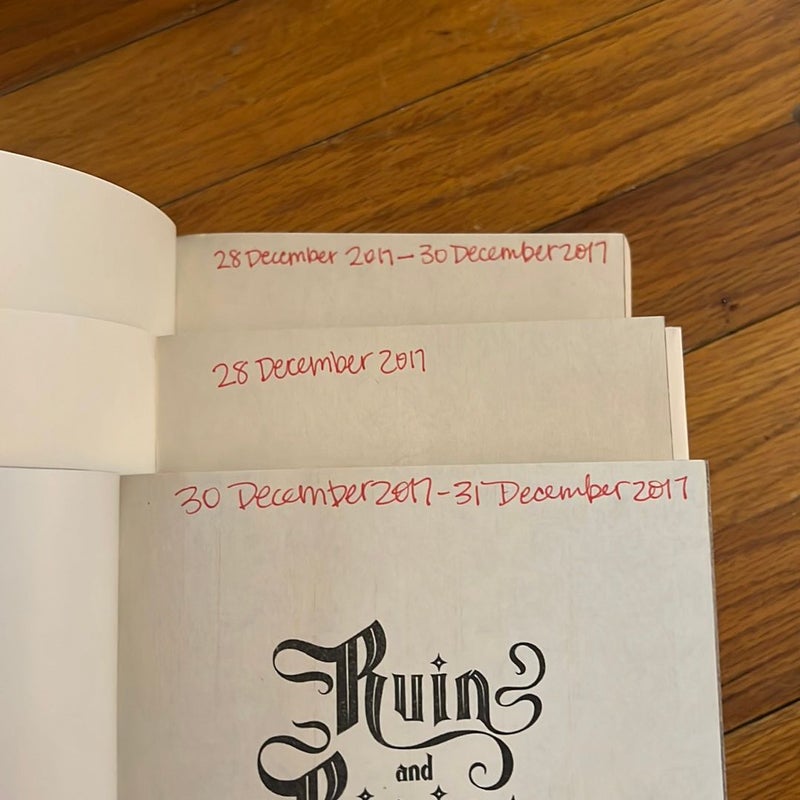 28 December 2017 – 30 December 2017
28 December 2017
30 December 2017 – 31 December 2017
Ruin
and